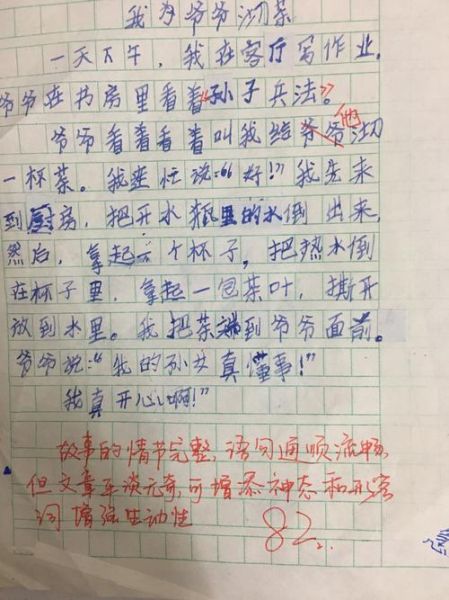 我为爷爷沏茶
一天下午，我在客厅写作业，
爷爷在书房里看着《孙子兵法》。
爷爷看着看着叫我给爷爷他沏
一杯茶。我连忙说：“好！”我先来
到厨房，把开水瓶里的水倒出来，
然后，拿起一个杯子，把热水倒
在杯子里，拿起一包茶叶，撕开
放到水里。我把茶端到爷爷面前。
爷爷说：“我的孙女真懂事！”
我真开心啊！”
故事的情节完整，语句通顺流畅，
但文章平淡无奇，可增添神态和形容
词增强生动性
82